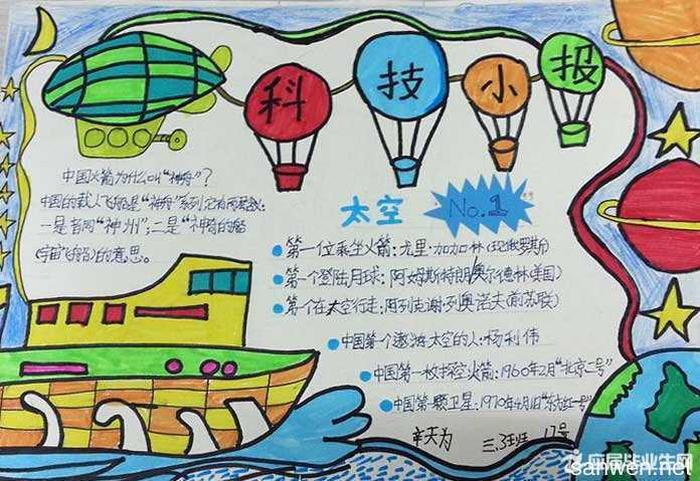 科技小报
中国火箭为什么叫“神舟”?
中国的载人飞船是“神舟”系列,它有两层意思:
一是音同“神州”;二是“神奇的船
(宇宙飞船)的意思。
太空 No.1
第一位乘坐火箭:尤里·加加林(现俄罗斯)
第一个登陆月球:阿姆斯特朗 奥尔德林(美国)
第一个在太空行走:阿列克谢·列奥诺夫(前苏联)
中国第一个遨游太空的人:杨利伟
中国第一枚探空火箭:1960年2月“北京二号”
中国第一颗卫星:1970年4月1日“东方红一号”
三.3班 17号
应届毕业生网
sanwen.net